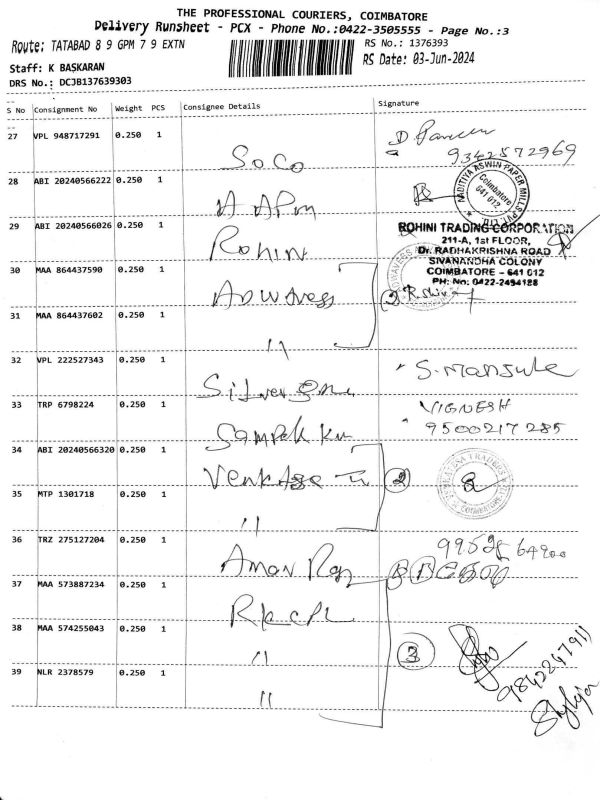 THE PROFESSIONAL COURIERS, COIMBATORE
Delivery Runsheet - PCX - Phone No.:0422-3505555 - Page No.:3
Route: TATABAD 8 9 GPM 7 9 EXTN
RS No.: 1376393
RS Date: 03-Jun-2024
Staff: K BASKARAN
DRS No.: DCJB137639303
S No Consignment No Weight PCS Consignee Details Signature
27 VPL 948717291 0.250 1
SoCo
9342572969
28 ABI 20240566222 0.250 1
AADITYA ASWIN PAPER MILLS PVT. LTD.
Coimbatore
641 012
29 ABI 20240566026 0.250 1
Rohini
ROHINI TRADING CORPORATION
211-A, 1st FLOOR,
Dr. RADHAKRISHNA ROAD
SIVANANDHA COLONY
COIMBATORE - 641 012
PH: No: 0422-2494188
30 MAA 864437590 0.250 1
Adwaves
31 MAA 864437602 0.250 1
"
32 VPL 222527343 0.250 1
S. Manjula
33 TRP 6798224 0.250 1
VIGNESH
9500217285
34 ABI 20240566320 0.250 1
2
35 MTP 1301718 0.250 1
"
36 TRZ 275127204 0.250 1
Aman
37 MAA 573887234 0.250 1
38 MAA 574255043 0.250 1
"
3
39 NLR 2378579 0.250 1
"
9842247911